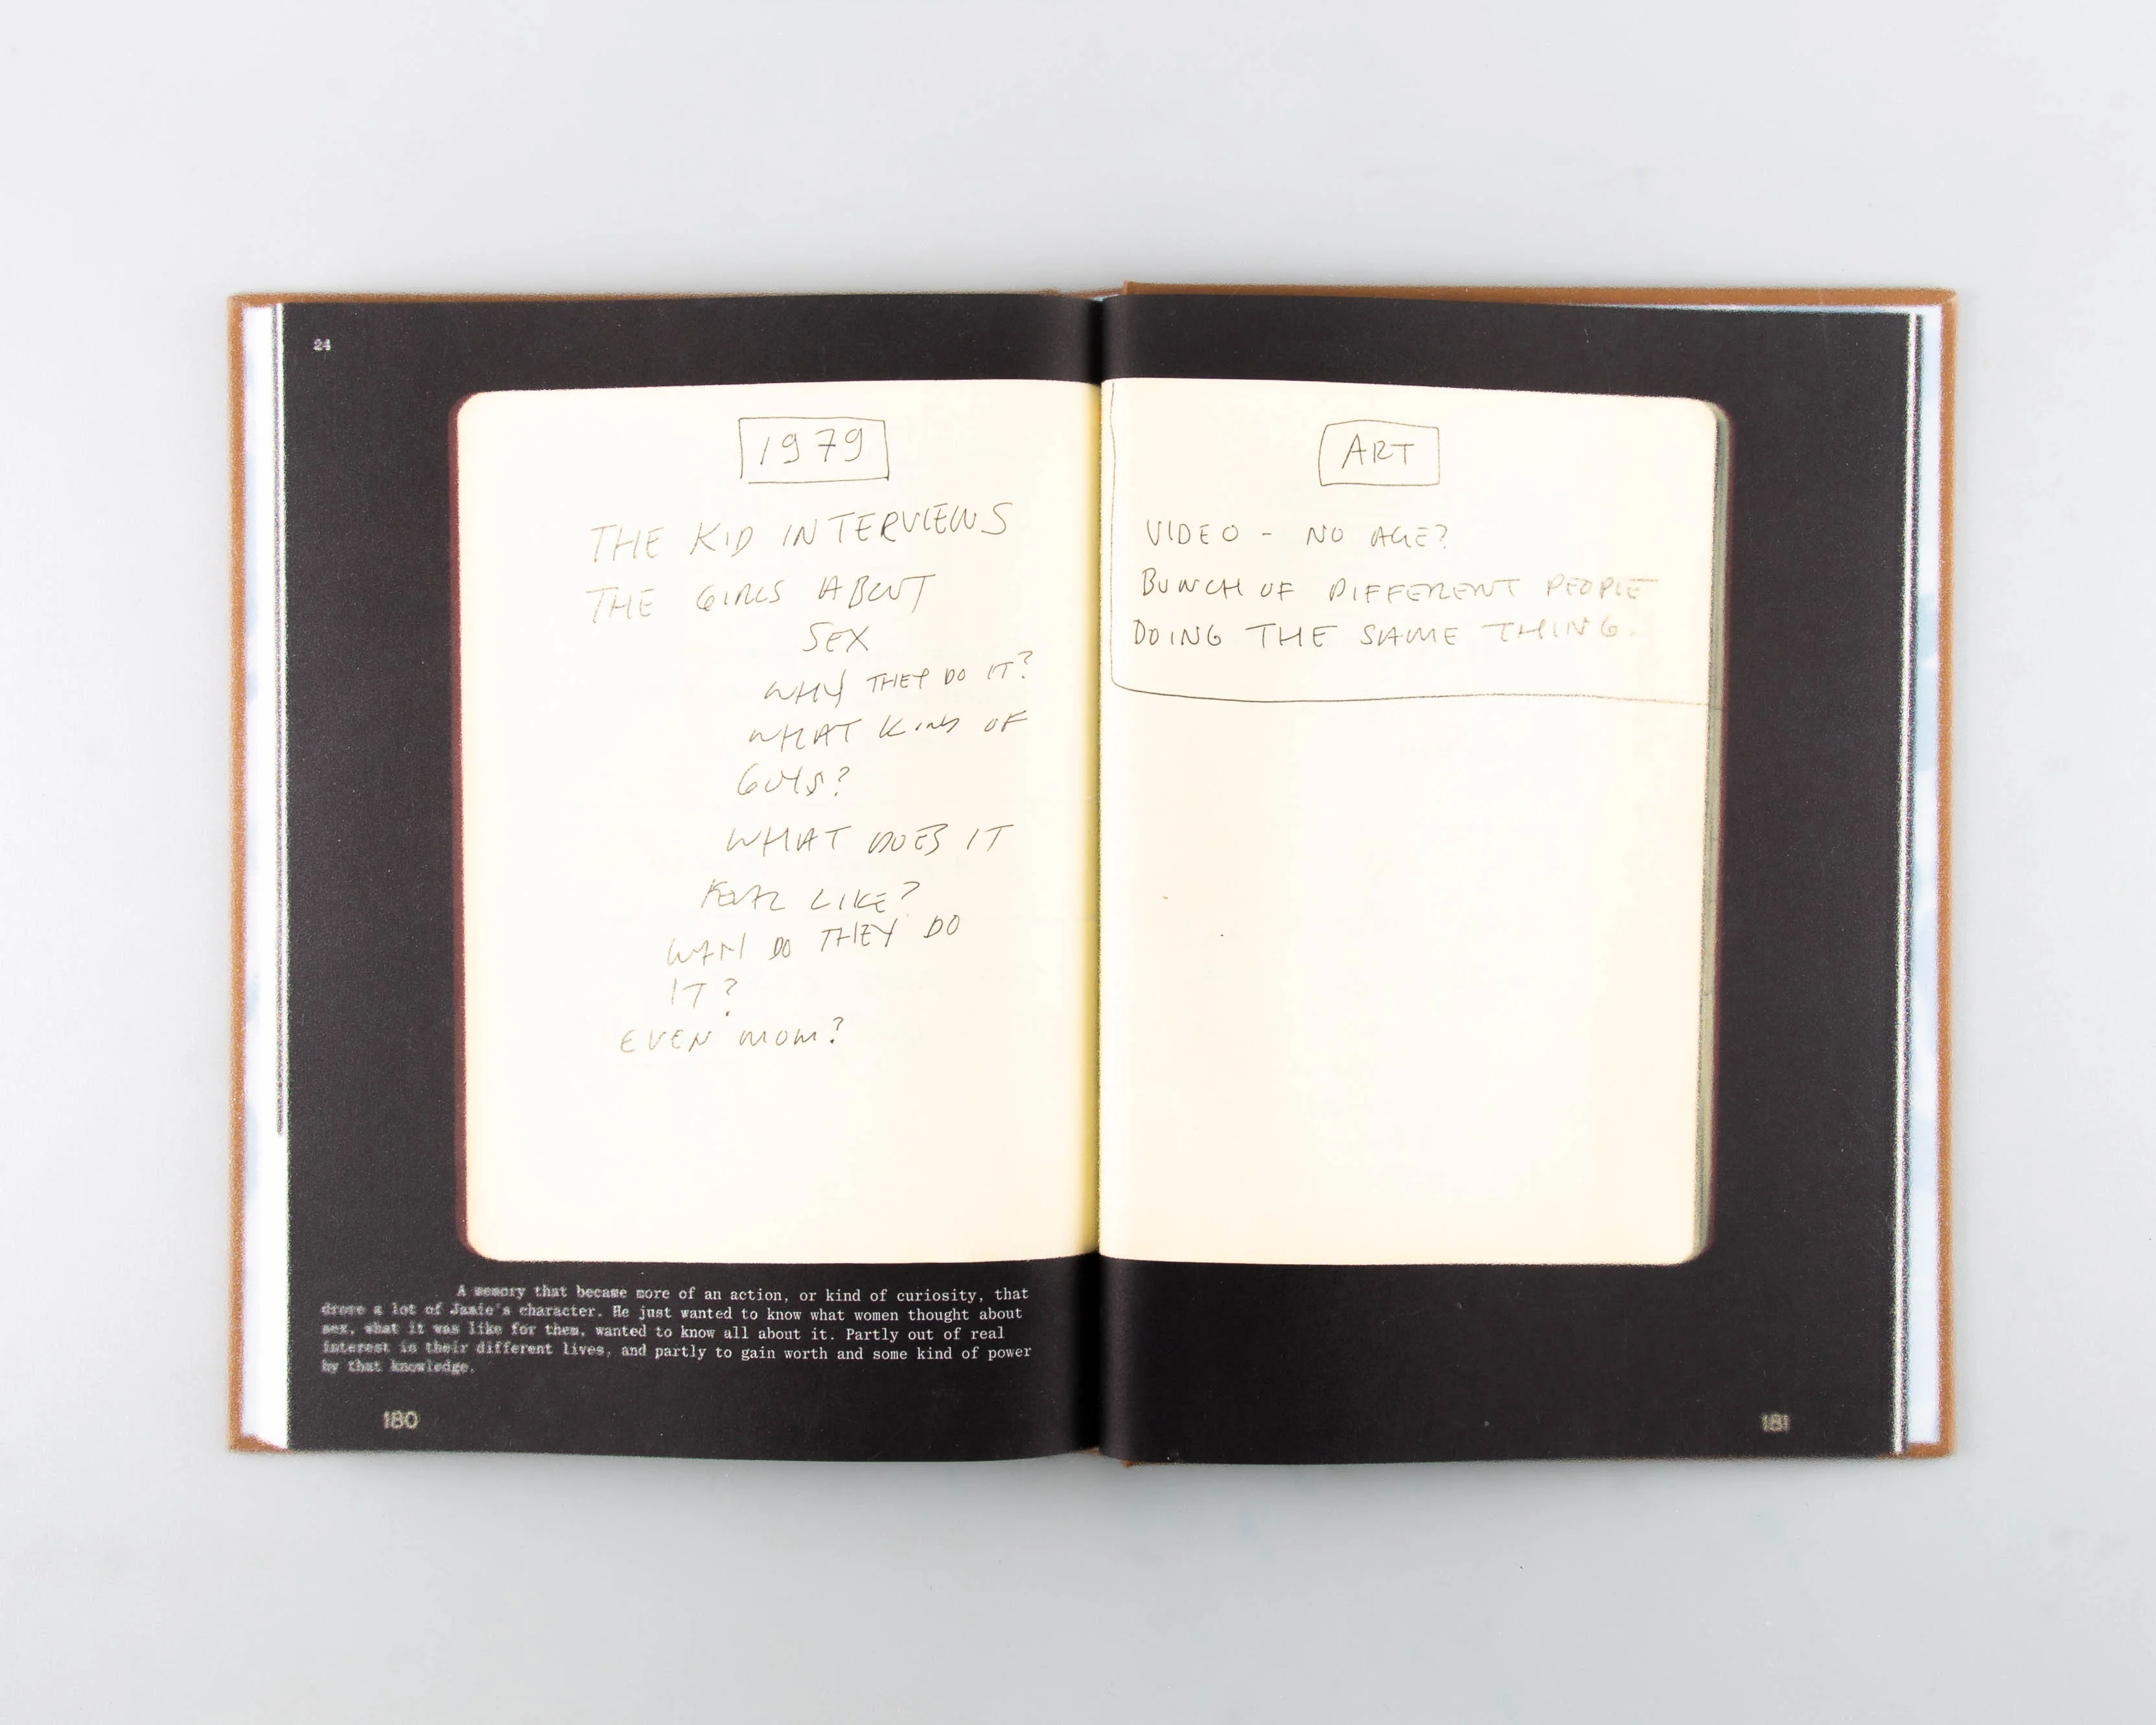 24
1979
THE KID INTERVIEWS
THE GIRLS ABOUT
SEX
WHY THEY DO IT?
WHAT KIND OF
GUYS?
WHAT DOES IT
FEEL LIKE?
WHY DO THEY DO
IT?
EVEN MOM?
A memory that became more of an action, or kind of curiosity, that
drove a lot of Jamie's character. He just wanted to know what women thought about
sex, what it was like for them, wanted to know all about it. Partly out of real
interest in their different lives, and partly to gain worth and some kind of power
by that knowledge.
180
ART
VIDEO - NO AGE?
BUNCH OF DIFFERENT PEOPLE
DOING THE SAME THING.
181